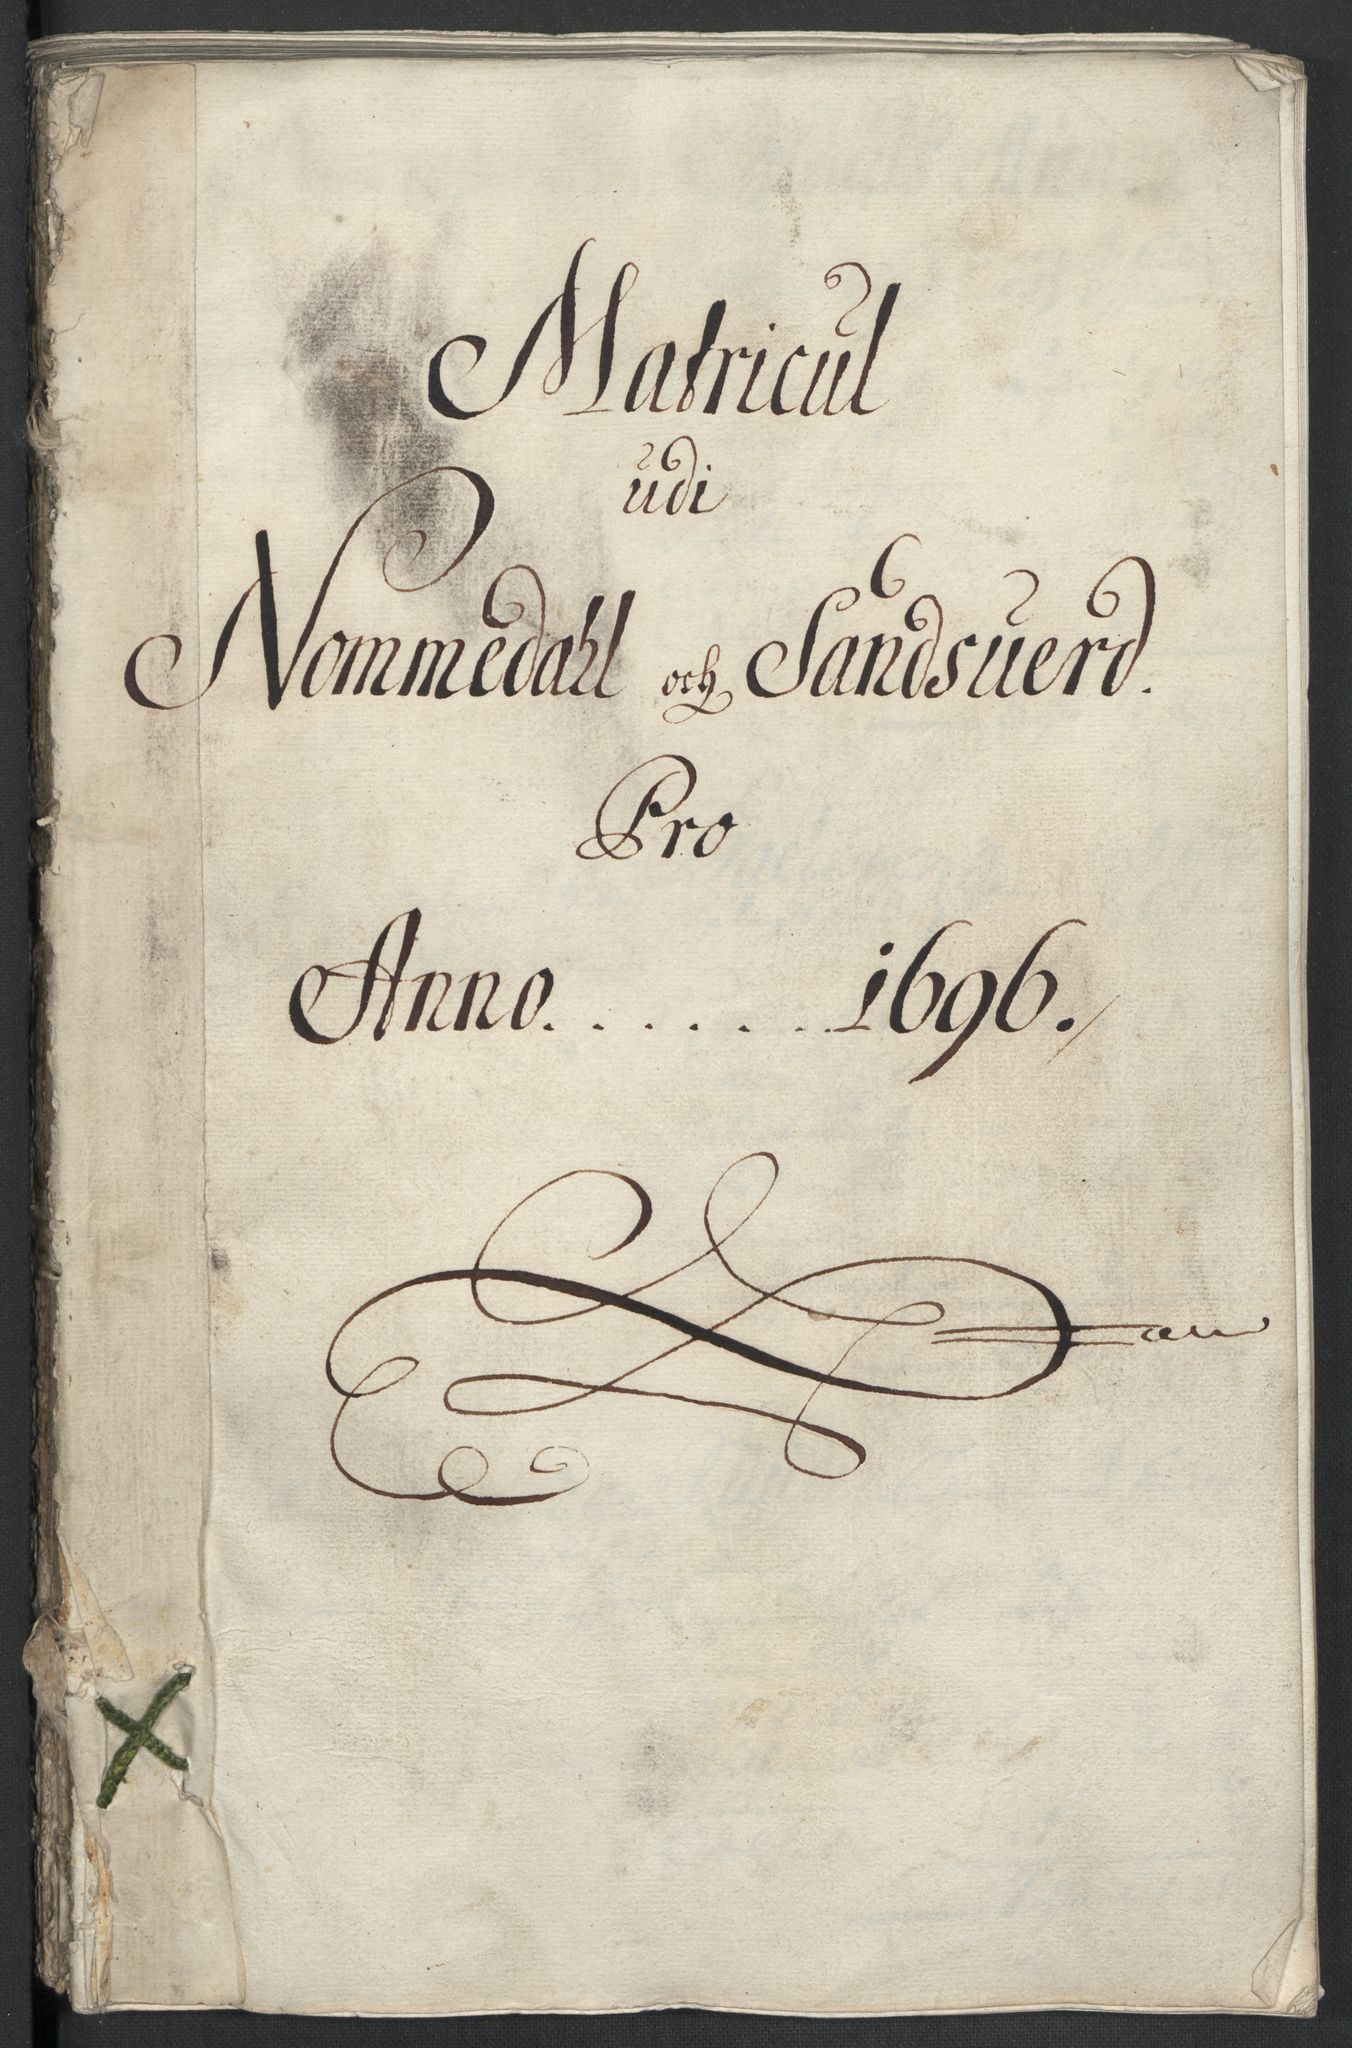 Matricul
udi
Nommedahl och Sandsuerd.
Pro
Anno. . . . . . . 1696.